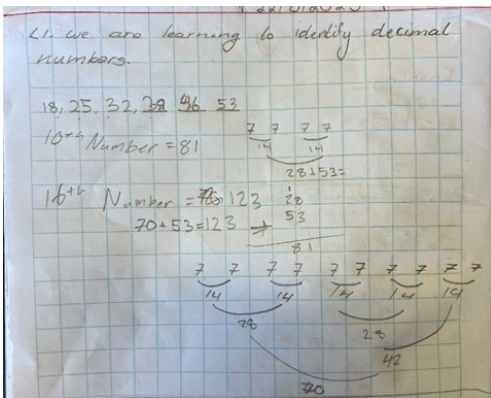 LI. we are learning to identify decimal
numbers.
18, 25, 32, 39 46 53
10th Number = 81
7 7 7 7
14 14
28+53=
16th Number = 123
70+53=123
1
28
+ 53
81
7 7 7 7 7 7 7 7 7 7
14 14 14 14 14
28 28
42
70